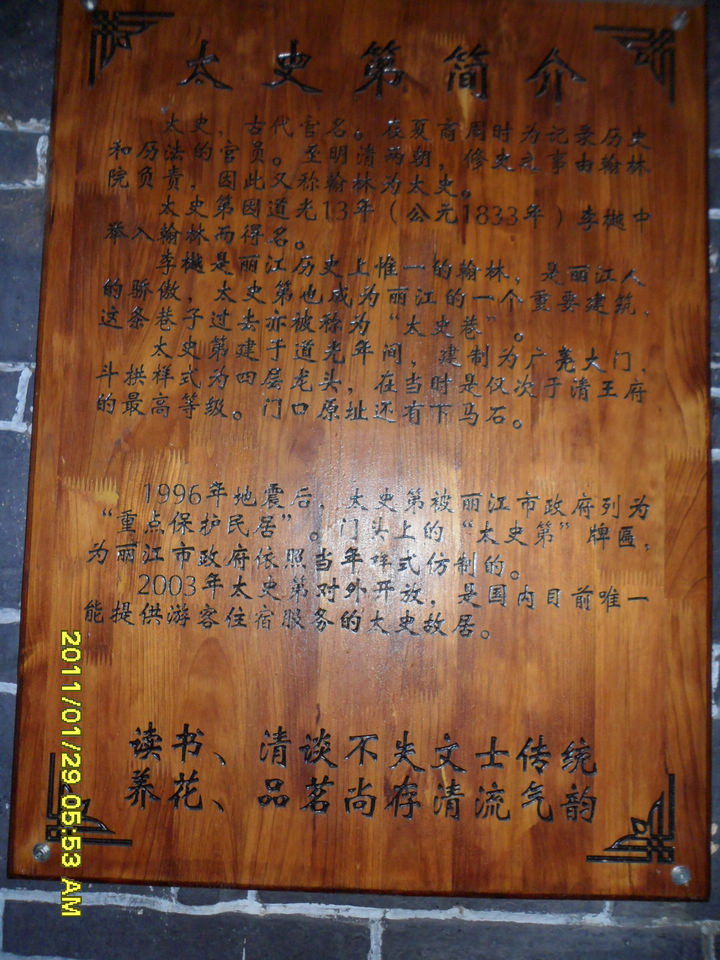 太史第简介
太史，古代官名。在夏商周时为记录历史
和历法的官员。至明清两朝，修史之事由翰林
院负责，因此又称翰林为太史。
太史第因道光13年（公元1833年）李樾中
举入翰林而得名。
李樾是丽江历史上惟一的翰林，是丽江人
的骄傲，太史第也成为丽江的一个重要建筑，
这条巷子过去亦被称为“太史巷”。
太史第建于道光年间，建制为广亮大门，
斗拱样式为四层龙头，在当时是仅次于清王府
的最高等级。门口原址还有下马石。
1996年地震后，太史第被丽江市政府列为
“重点保护民居”。门头上的“太史第”牌匾，
为丽江市政府依照当年样式仿制的。
2003年太史第对外开放，是国内目前唯一
能提供游客住宿服务的太史故居。
读书、清谈不失文士传统
养花、品茗尚存清流气韵
2011/01/29 05:53 AM